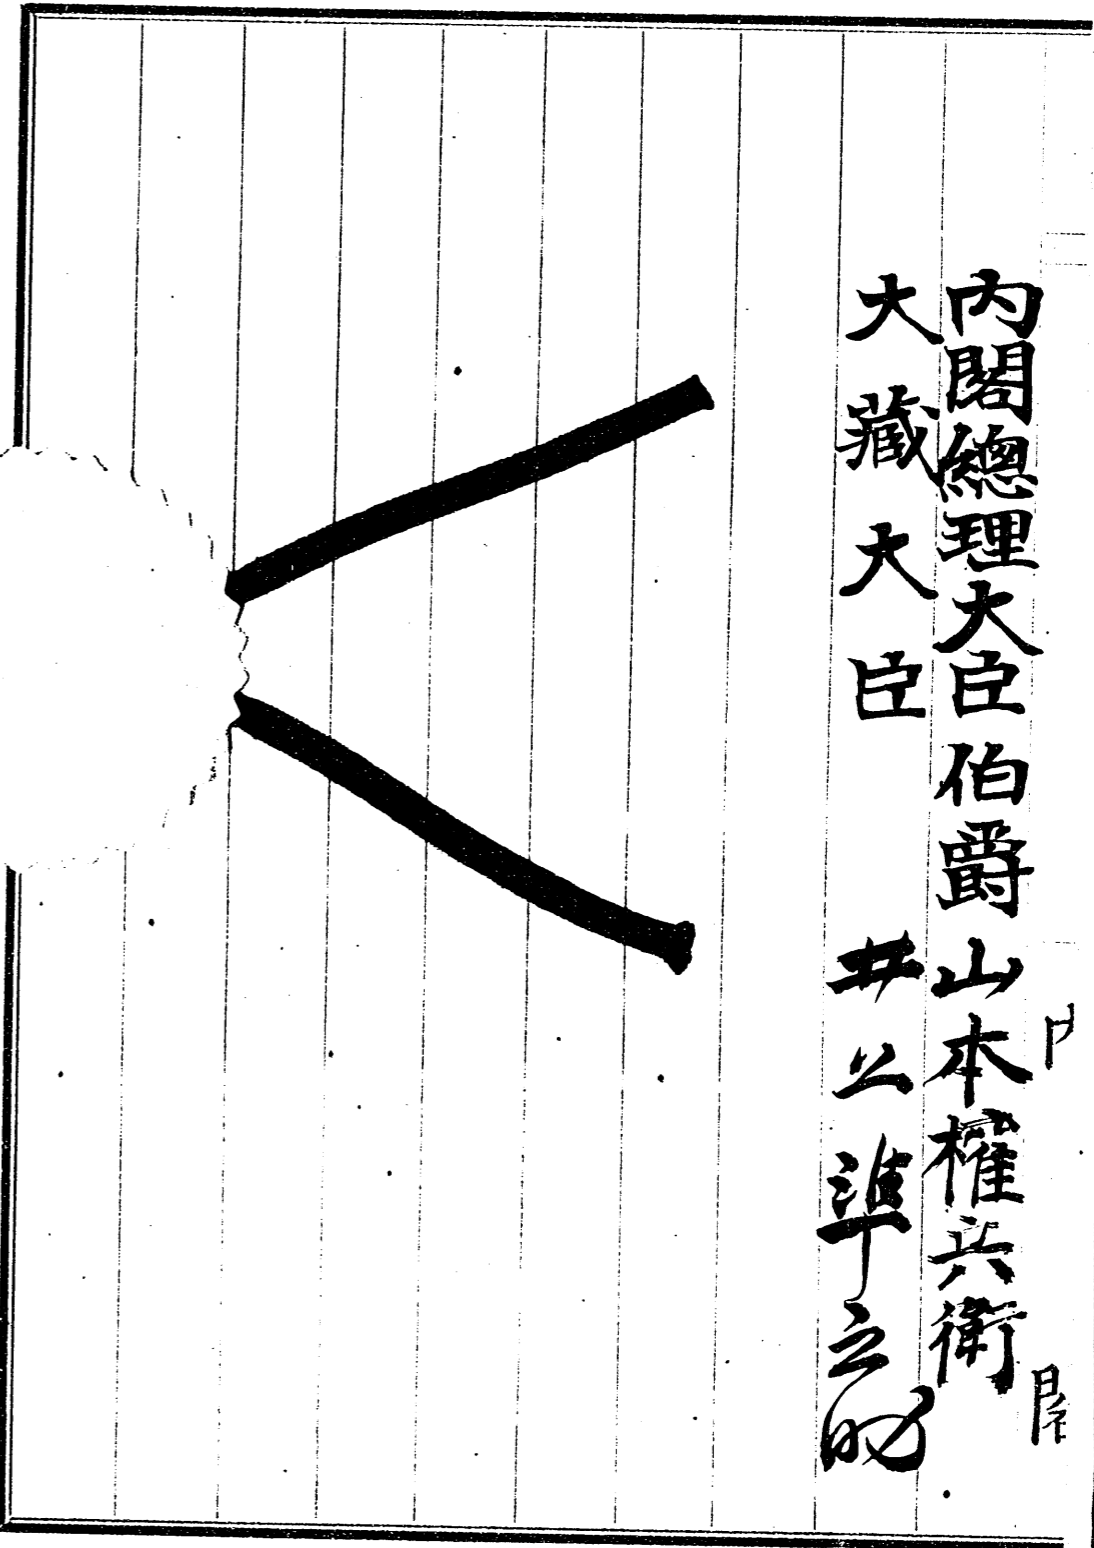 內閣總理大臣伯爵山本權兵衞
大藏大臣 井上準之助
內閣